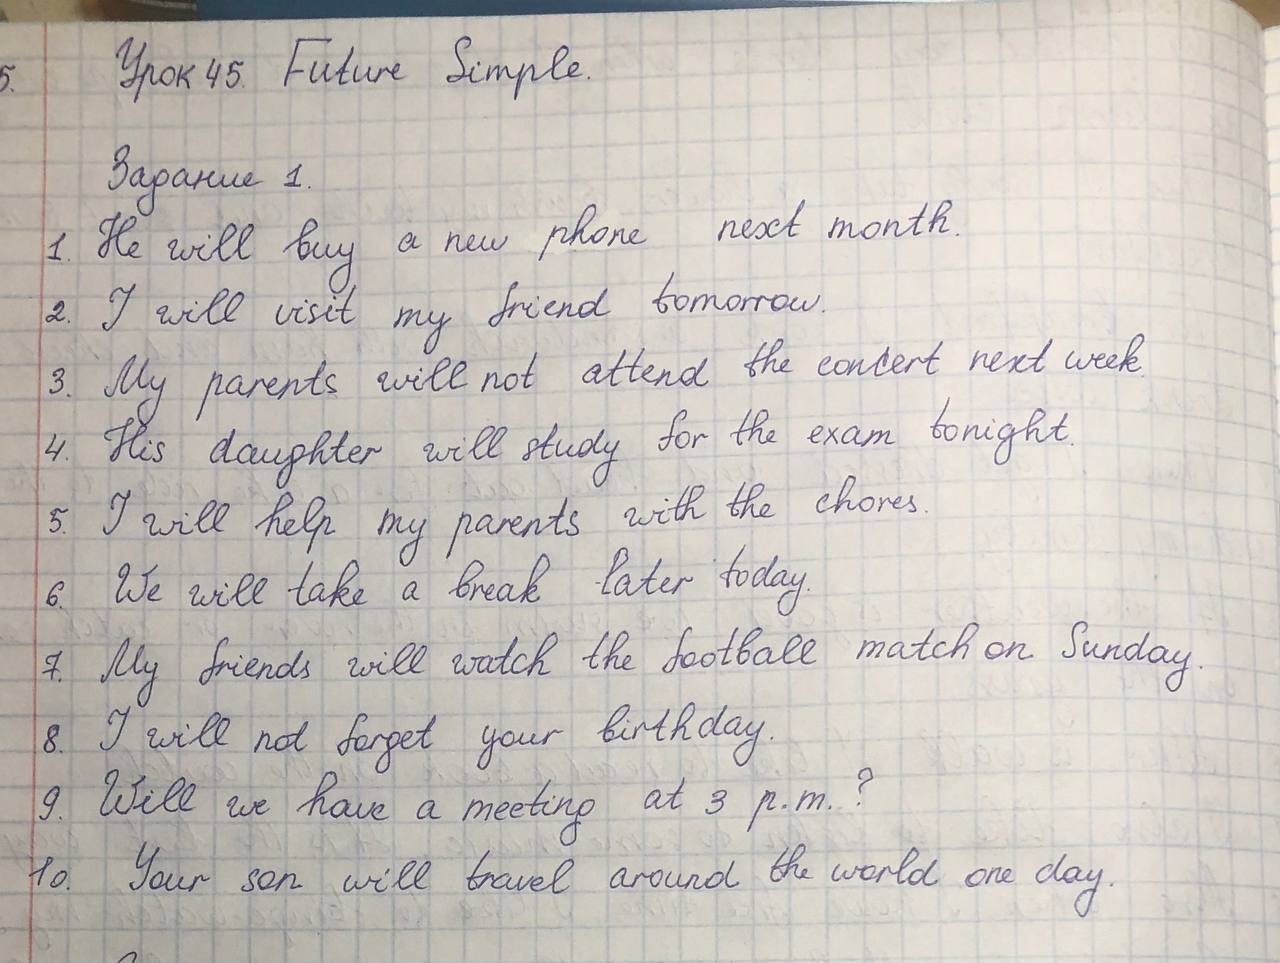 5.
Урок 45. Future Simple.
Задание 1.
1. He will buy a new phone next month.
2. I will visit my friend tomorrow.
3. My parents will not attend the concert next week.
4. His daughter will study for the exam tonight.
5. I will help my parents with the chores.
6. We will take a break later today.
7. My friends will watch the football match on Sunday.
8. I will not forget your birthday.
9. Will we have a meeting at 3 p.m.?
10. Your son will travel around the world one day.